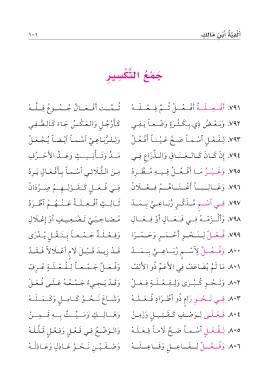 أَلْفِيَّةُ ابْنِ مَالِكٍ
١٠١
جَمْعُ التَّكْسِيرِ
٧٩١. أَفْعِلَةٌ أَفْعُلُ ثُمَّ فِعْلَهْ ثُمَّتَ أَفْعَالٌ جُمُوعُ قِلَّهْ
٧٩٢. وَبَعْضُ ذِي بِكَثْرَةٍ وَضْعًا يَفِي كَأَرْجُلٍ وَالْعَكْسُ جَاءَ كَالصُّفِي
٧٩٣. لِفَعْلٍ اسْماً صَحَّ عَيْناً أَفْعُلُ وَلِلرُّبَاعِيِّ اسْماً أَيْضاً يُجْعَلُ
٧٩٤. إِنْ كَانَ كَالْعَنَاقِ وَالذِّرَاعِ فِي مَدٍّ وَتَأْنِيثٍ وَعَدِّ الْأَحْرُفِ
٧٩٥. وَغَيْرُ مَا أَفْعُلُ فِيهِ مُطَّرِدْ مِنَ الثُّلَاثِي اسْماً بِأَفْعَالٍ يَرِدْ
٧٩٦. وَغَالِباً أَغْنَاهُمُ فِعْلَانُ فِي فُعَلٍ كَقَوْلِهِمْ صِرْدَانُ
٧٩٧. فِي اسْمٍ مُذَكَّرٍ رُبَاعِيٍّ بِمَدّ ثَالِثٍ افْعِلَةُ عَنْهُمُ اطَّرَدْ
٧٩٨. وَالْزَمْهُ فِي فَعَالٍ أَوْ فِعَالِ مُصَاحِبَيْ تَضْعِيفٍ أَوْ إِعْلَالِ
٧٩٩. فُعْلٌ لِنَحْوِ أَحْمَرٍ وَحَمْرَا وَفِعْلَةٌ جَمْعاً بِنَقْلٍ يُدْرَى
٨٠٠. وَفُعُلٌ لِاسْمٍ رُبَاعِيٍّ بِمَدّ قَدْ زِيدَ قَبْلَ لَامٍ اعْلَالاً فَقَدْ
٨٠١. مَا لَمْ يُضَاعَفْ فِي الْأَعَمِّ ذُو الْأَلِفْ وَفُعَلٌ جَمْعاً لِفُعْلَةٍ عُرِفْ
٨٠٢. وَنَحْوِ كُبْرَى وَلِفِعْلَةٍ فِعَلْ وَقَدْ يَجِيءُ جَمْعُهُ عَلَى فُعَلْ
٨٠٣. فِي نَحْوِ رَامٍ ذُو اطِّرَادٍ فُعَلَهْ وَشَاعَ نَحْوُ كَامِلٍ وَكَمَلَهْ
٨٠٤. فَعْلَى لِوَصْفٍ كَقَتِيلٍ وَزَمِنْ وَهَالِكٍ وَمَيِّتٌ بِهِ قَمِنْ
٨٠٥. لِفُعْلٍ اسْماً صَحَّ لَاماً فِعَلَهْ وَالْوَضْعُ فِي فَعْلٍ وَفِعْلٍ قَلَّلَهْ
٨٠٦. وَفُعَّلٌ لِفَاعِلٍ وَفَاعِلَهْ وَصْفَيْنِ نَحْوُ عَاذِلٍ وَعَاذِلَهْ